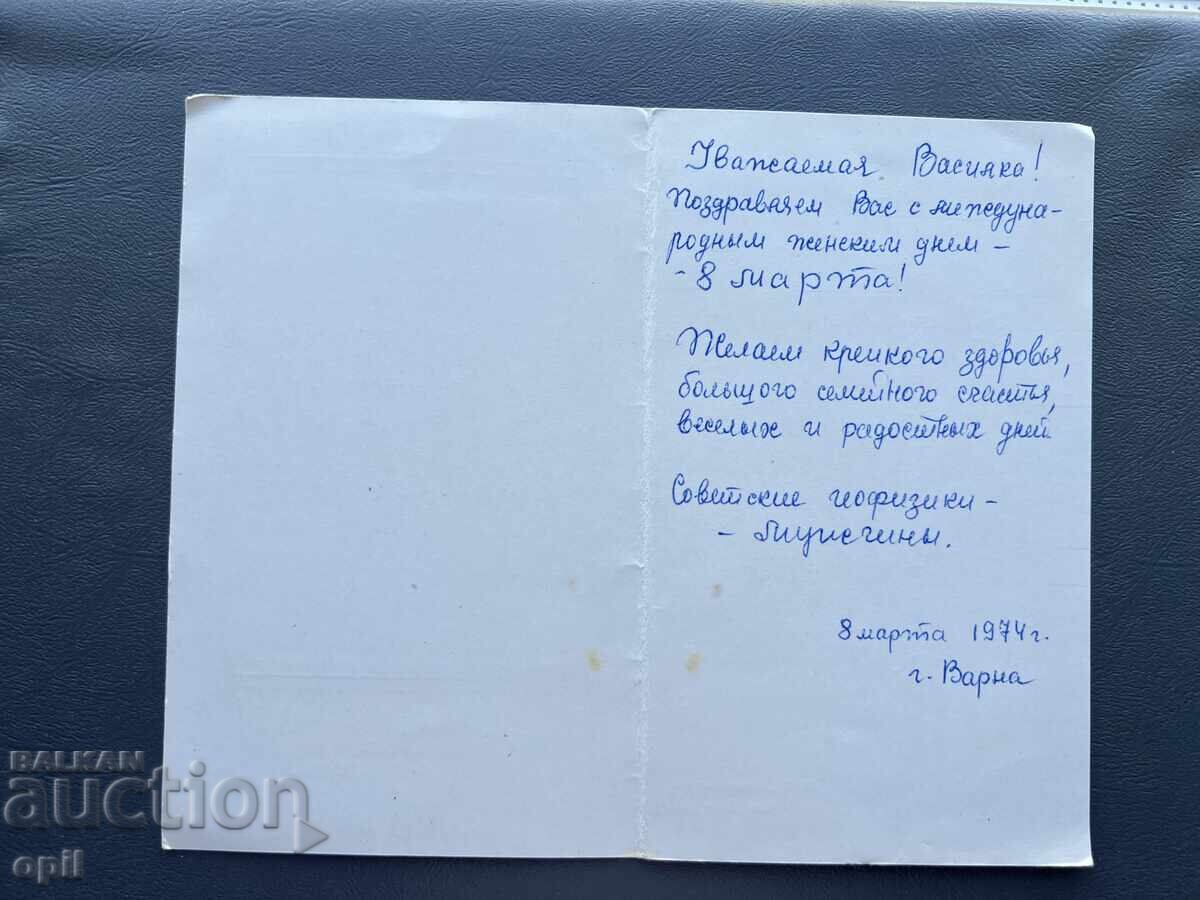 Уважаемая Василка!
Поздравляем Вас с междуна-
родным женским днем -
- 8 марта!
Желаем крепкого здоровья,
большого семейного счастья,
веселых и радостных дней
Советские геофизики -
- мужчины.
8 марта 1974 г.
г. Варна
BALKAN
auction
opil